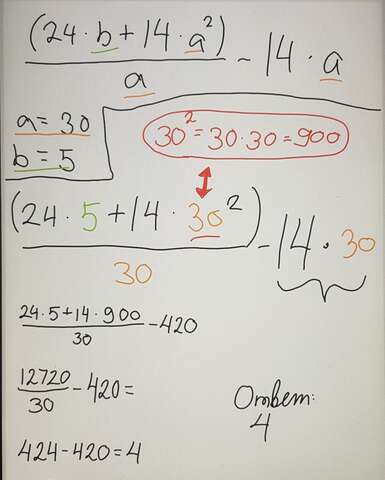 (24·b+14·a²)/a - 14·a
a = 30
b = 5
30² = 30·30 = 900
(24·5+14·30²)/30 - 14·30
24·5+14·900/30 - 420
12720/30 - 420 =
424 - 420 = 4
Ответ:
4